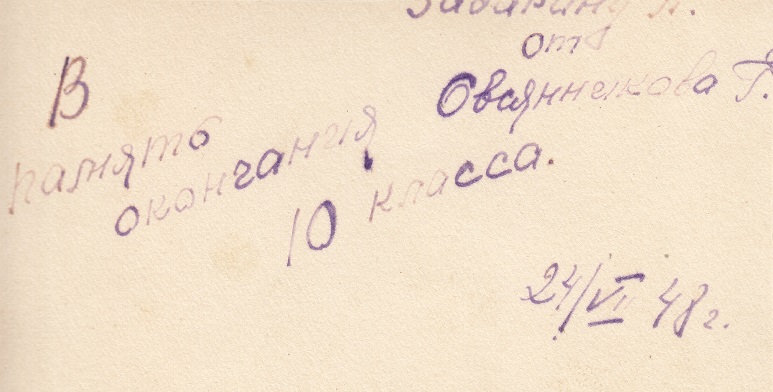 от
Овсянникова Г.
В
память
окончания
10 класса.
24/VII 48 г.